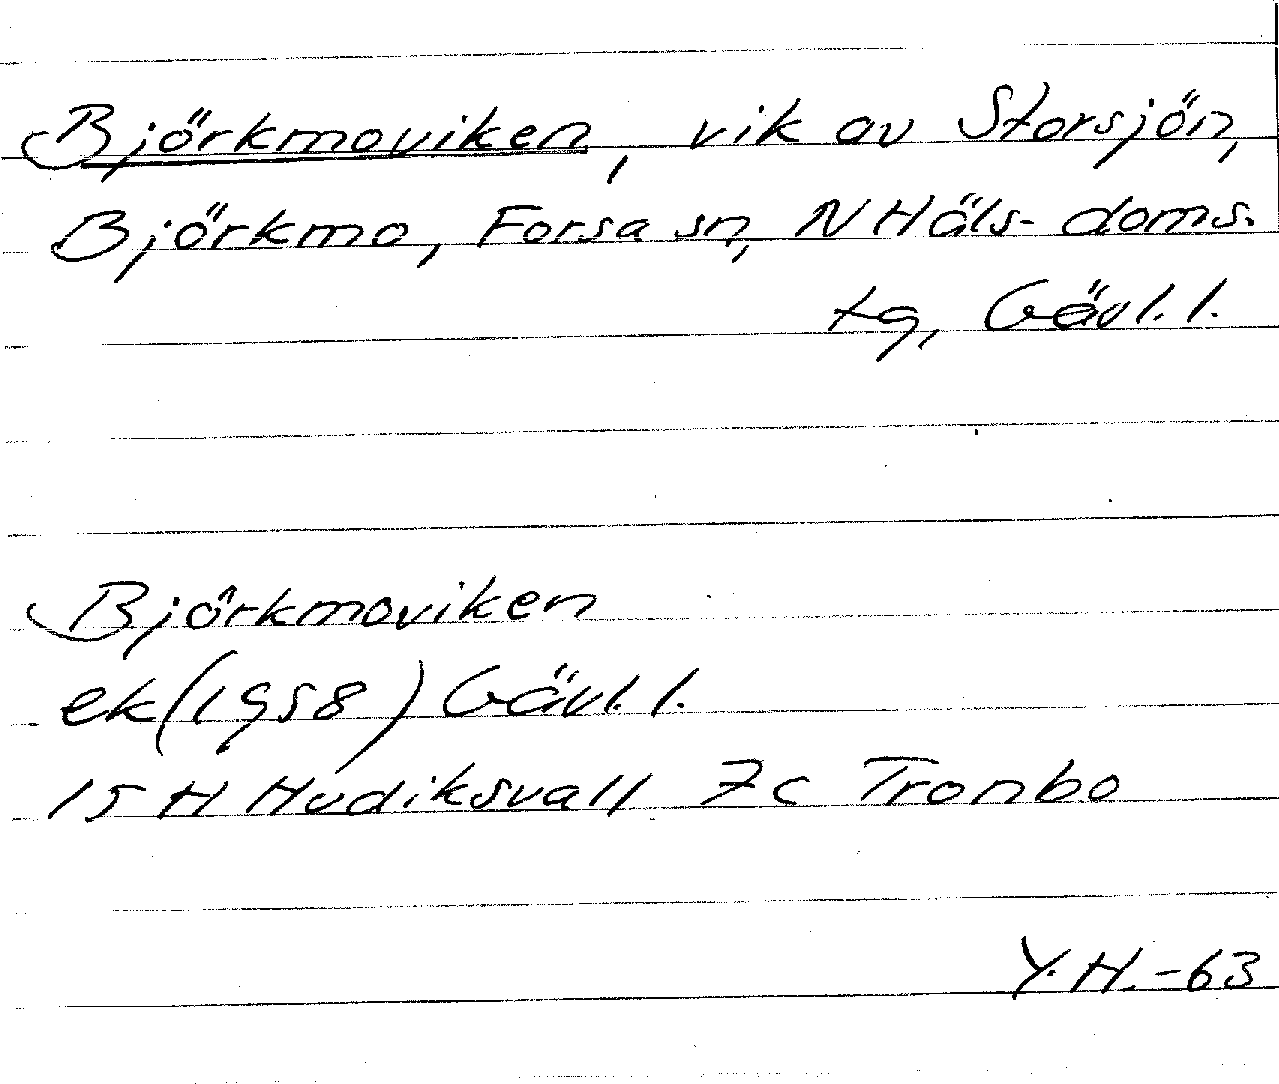 Björkmoviken, vik av Storsjön,
Björkmo, Forsa sn, N Häls. doms.
tg, Gävl. l.
Björkmoviken
ek (1958) Gävl. l.
15 H Hudiksvall 7c Trombo
Y. H. -63